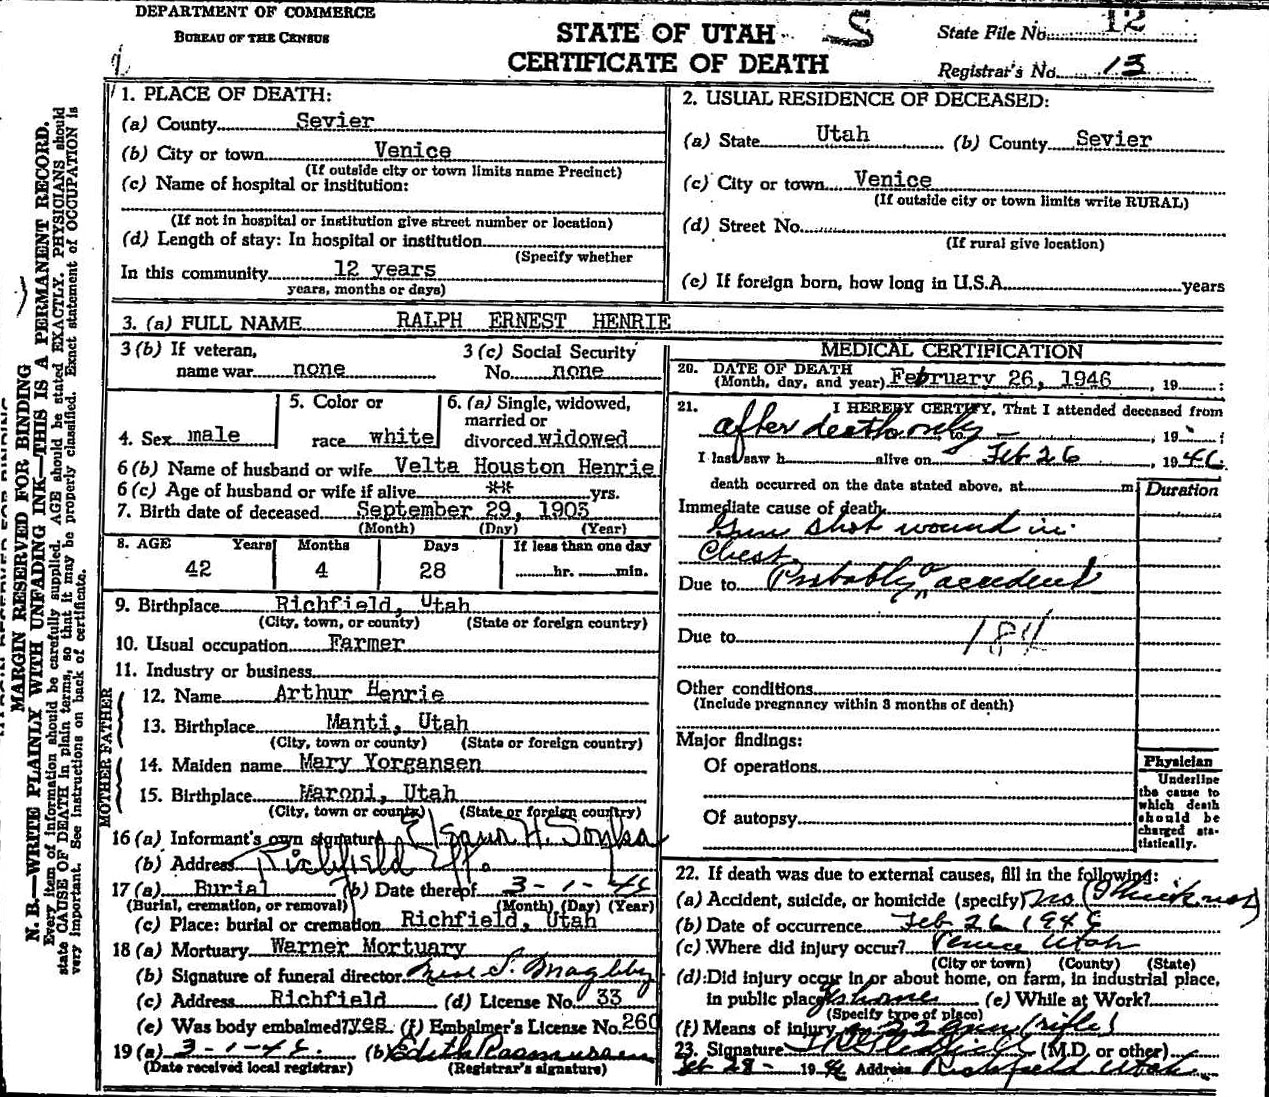 DEPARTMENT OF COMMERCE
BUREAU OF THE CENSUS
STATE OF UTAH
CERTIFICATE OF DEATH
State File No. 12
Registrar's No. 13
MARGIN RESERVED FOR BINDING
N. B.—WRITE PLAINLY WITH UNFADING INK—THIS IS A PERMANENT RECORD.
Every item of information should be carefully supplied. AGE should be stated EXACTLY. PHYSICIANS should
state CAUSE OF DEATH in plain terms, so that it may be properly classified. Exact statement of OCCUPATION is
very important. See instructions on back of certificate.
1. PLACE OF DEATH:
(a) County Sevier
(b) City or town Venice
(If outside city or town limits name Precinct)
(c) Name of hospital or institution:
(If not in hospital or institution give street number or location)
(d) Length of stay: In hospital or institution
(Specify whether
In this community 12 years
years, months or days)
2. USUAL RESIDENCE OF DECEASED:
(a) State Utah (b) County Sevier
(c) City or town Venice
(If outside city or town limits write RURAL)
(d) Street No.
(If rural give location)
(e) If foreign born, how long in U.S.A. years
3. (a) FULL NAME RALPH ERNEST HENRIE
3 (b) If veteran, name war none
3 (c) Social Security No. none
4. Sex male
5. Color or race white
6. (a) Single, widowed, married or divorced widowed
6 (b) Name of husband or wife Velta Houston Henrie
6 (c) Age of husband or wife if alive ** yrs.
7. Birth date of deceased September 29, 1903
(Month) (Day) (Year)
8. AGE Years Months Days If less than one day
42 4 28 hr. min.
9. Birthplace Richfield, Utah
(City, town, or county) (State or foreign country)
10. Usual occupation Farmer
11. Industry or business
FATHER
12. Name Arthur Henrie
13. Birthplace Manti, Utah
(City, town or county) (State or foreign country)
MOTHER
14. Maiden name Mary Yorgansen
15. Birthplace Maroni, Utah
(City, town or county) (State or foreign country)
16 (a) Informant's own signature
(b) Address Richfield
17 (a) Burial (b) Date thereof 3-1-46
(Burial, cremation, or removal) (Month) (Day) (Year)
(c) Place: burial or cremation Richfield, Utah
18 (a) Mortuary Warner Mortuary
(b) Signature of funeral director S. Magleby
(c) Address Richfield (d) License No. 33
(e) Was body embalmed? yes (f) Embalmer's License No. 260
19 (a) 3-1-46. (b) Edith Rasmussen
(Date received local registrar) (Registrar's signature)
MEDICAL CERTIFICATION
20. DATE OF DEATH
(Month, day, and year) February 26, 1946, 19 :
21. I HEREBY CERTIFY, That I attended deceased from
after death only to , 19 ;
I last saw h alive on Feb 26, 1946.
death occurred on the date stated above, at m
Duration
Immediate cause of death
Gun shot wound in
Chest
Due to Probably accident
Due to
Other conditions
(Include pregnancy within 3 months of death)
Major findings:
Of operations
Of autopsy
Physician
Underline
the cause to
which death
should be
charged sta-
tistically.
22. If death was due to external causes, fill in the following:
(a) Accident, suicide, or homicide (specify) no (I think not)
(b) Date of occurrence Feb 26 1946
(c) Where did injury occur? Venice Utah
(City or town) (County) (State)
(d) Did injury occur in or about home, on farm, in industrial place,
in public place? home (e) While at Work?
(Specify type of place)
(f) Means of injury 22 gun (rifle)
23. Signature (M.D. or other)
Feb 28 - 1946 Address Richfield Utah